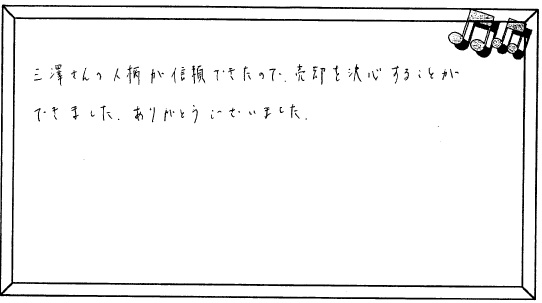 三澤さんの人柄が信頼できたので、売却を決心することが
できました。ありがとうございました。